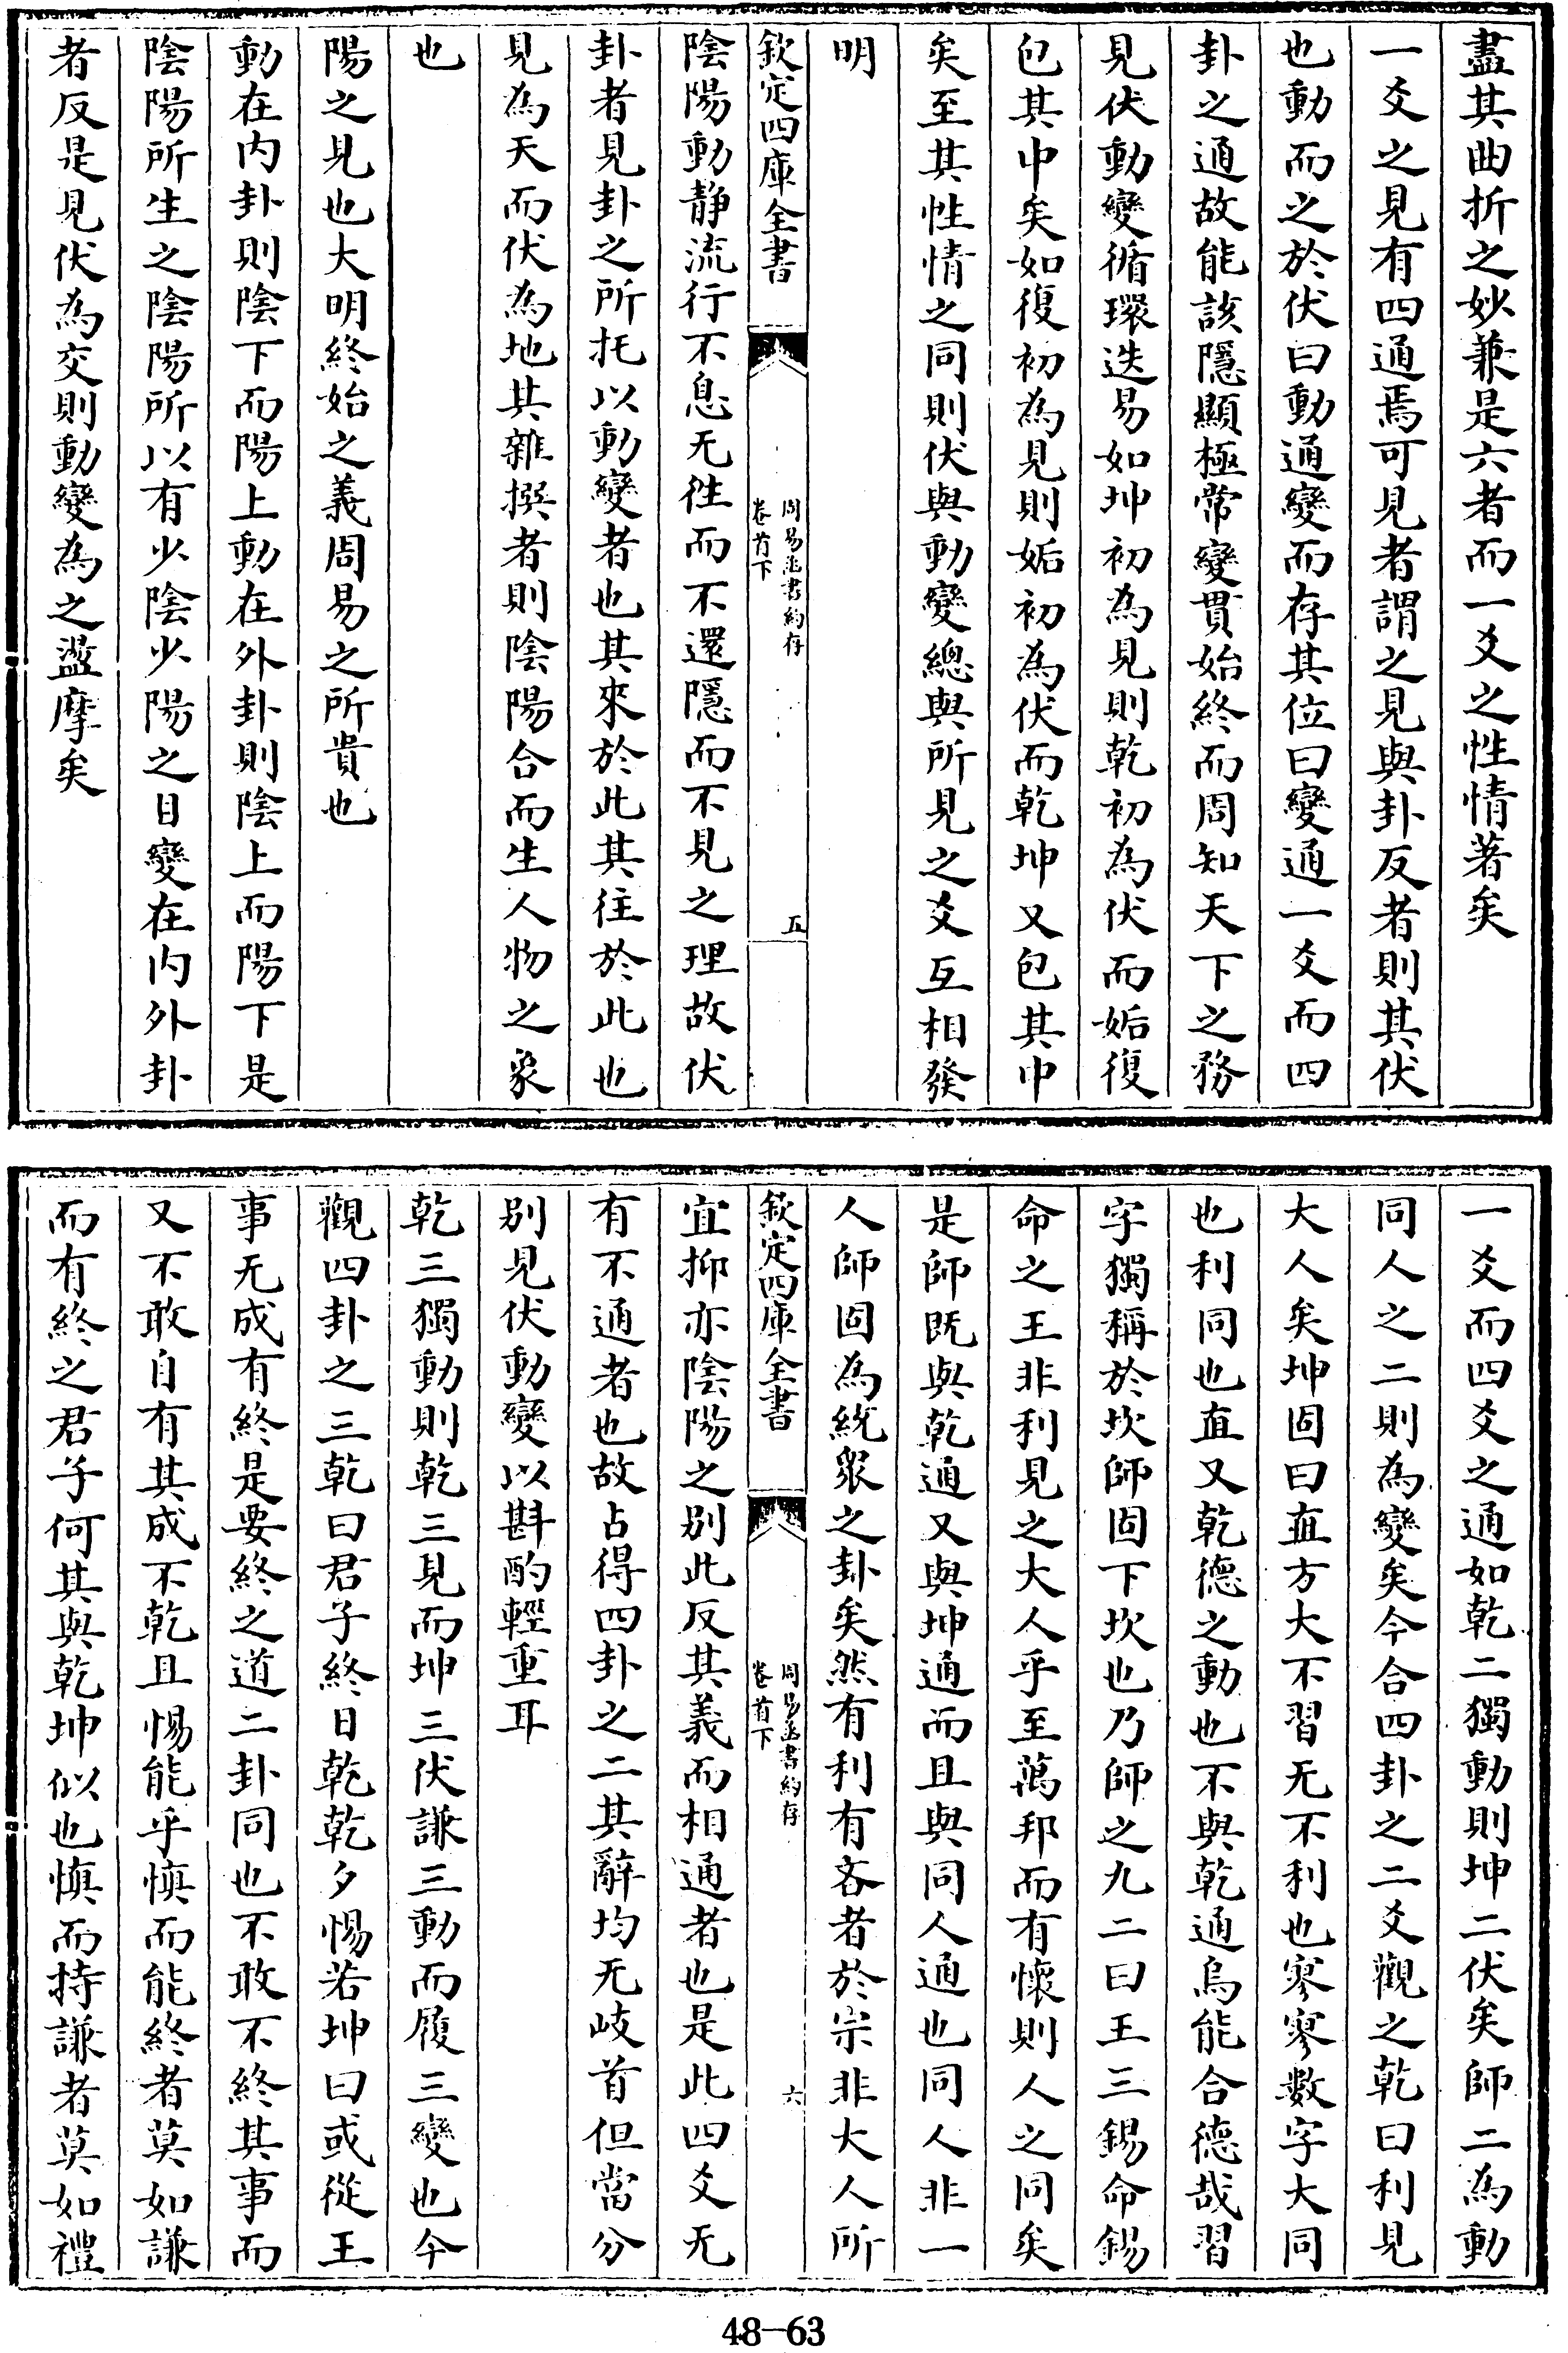 盡其曲折之妙兼是六者而一爻之性情著矣
一爻之見有四通焉可見者謂之見與卦反者則其伏
也動而之於伏曰動通變而存其位曰變通一爻而四
卦之通故能該隱顯極常變貫始終而周知天下之務
見伏動變循環迭易如坤初為見則乾初為伏而姤復
包其中矣如復初為見則姤初為伏而乾坤又包其中
矣至其性情之同則伏與動變總與所見之爻互相發
明
欽定四庫全書
周易函書約存
卷首下
五
陰陽動靜流行不息无往而不還隱而不見之理故伏
卦者見卦之所托以動變者也其來於此其往於此也
見為天而伏為地其雜撰者則陰陽合而生人物之象
也
陽之見也大明終始之義周易之所貴也
動在內卦則陰下而陽上動在外卦則陰上而陽下是
陰陽所生之陰陽所以有少陰少陽之目變在內外卦
者反是見伏為交則動變為之盪摩矣
一爻而四爻之通如乾二獨動則坤二伏矣師二為動
同人之二則為變矣今合四卦之二爻觀之乾曰利見
大人矣坤固曰直方大不習无不利也寥寥數字大同
也利同也直又乾德之動也不與乾通烏能合德哉習
字獨稱於坎師固下坎也乃師之九二曰王三錫命錫
命之王非利見之大人乎至萬邦而有懷則人之同矣
是師既與乾通又與坤通而且與同人通也同人非一
人師固為統衆之卦矣然有利有吝者於宗非大人所
欽定四庫全書
周易函書約存
卷首下
六
宜抑亦陰陽之別此反其義而相通者也是此四爻无
有不通者也故占得四卦之二其辭均无岐首但當分
別見伏動變以斟酌輕重耳
乾三獨動則乾三見而坤三伏謙三動而履三變也今
觀四卦之三乾曰君子終日乾乾夕惕若坤曰或從王
事无成有終是要終之道二卦同也不敢不終其事而
又不敢自有其成不乾且惕能乎慎而能終者莫如謙
而有終之君子何其與乾坤似也慎而持謙者莫如禮
48-63